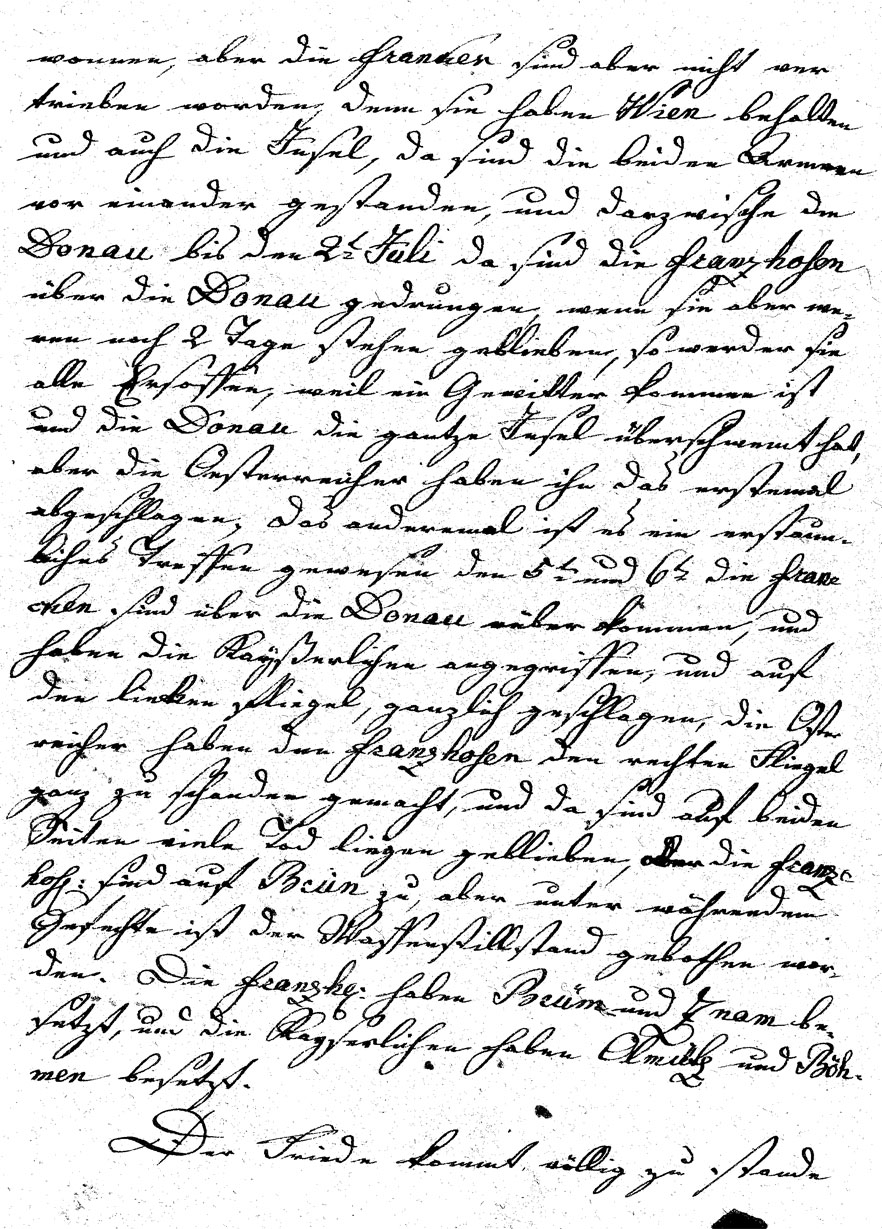 wonnen, aber die Francken sind aber nicht ver
trieben worden, denn sie haben Wien behalten
und auch die Insel, da sind die beiden Armeen
vor einander gestanden, und darzwische die
Donau bis den 2t Juli da sind die Franzhosen
über die Donau gedrungen, wenn sie aber we-
ren noch 2 Tage stehen geblieben, so werder sie
alle Ersoffen, weil ein Gewitter kommen ist
und die Donau die gantze Insel überschwemt hat,
aber die Oesterreicher haben ihn das erstemal
abgeschlagen, das anderemal ist es ein erstaun-
liches Treffen gewesen den 5tn und 6tn die Fran
cken sind über die Donau nüber kommen, und
haben die Kayßerlichen angegriffen, und auf
den linken Fliegel, ganzlich geschlagen, die Oster
reicher haben den Franzhosen den rechten Fliegel
ganz zu schanden gemacht, und da sind auf beiden
Seiten viele Tod liegen geblieben, aber die Franz
hos: sind auf Brün zu, aber unter währendem
Gefechte ist der Waffenstillstand gebothen wor-
den. Die Franzhs: haben Brüm und Znam be-
setzt, und die Kayserlichen haben Olmütz und Böh-
men besetzt.
Der Friede kommt völlig zu stande